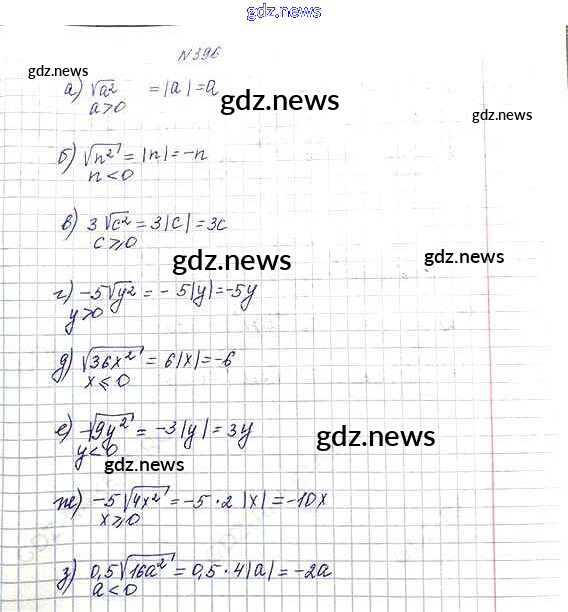 gdz.news
N396
gdz.news
а) √a² = |a| = a
a>0
gdz.news
gdz.news
б) √n² = |n| = -n
n<0
в) 3√c² = 3|c| = 3c
c⩾0
gdz.news
gdz.news
г) -5√y² = -5|y| = -5y
y>0
д) √36x² = 6|x| = -6
x⩽0
е) -√9y² = -3|y| = 3y
y<0
gdz.news
gdz.news
ж) -5√4x² = -5·2|x| = -10x
x⩾0
з) 0,5√16a² = 0,5·4|a| = -2a
a<0